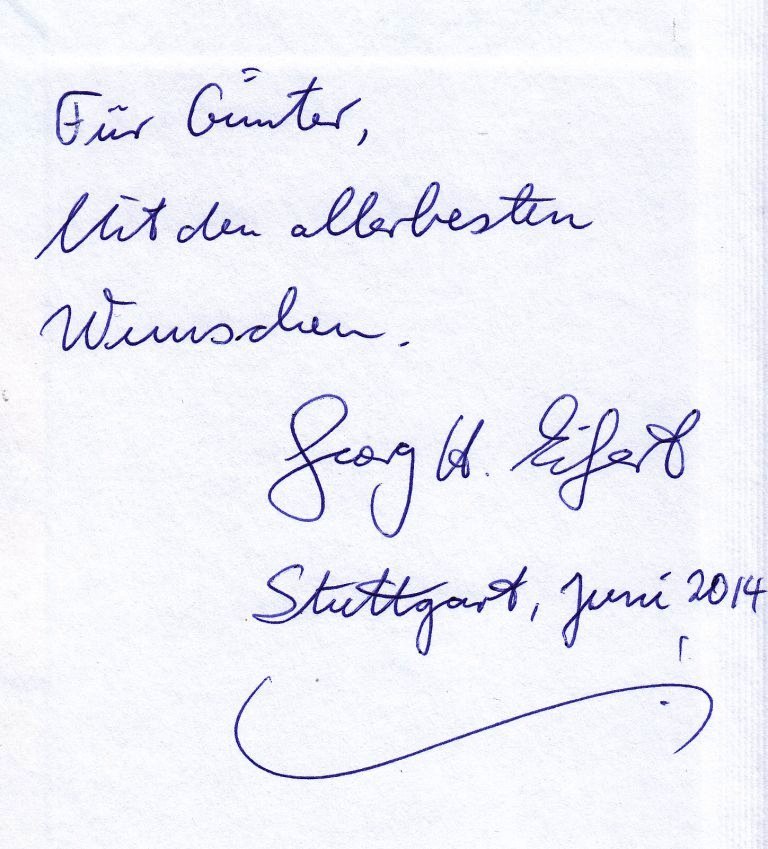 Für Günter,
Mit den allerbesten
Wunschen.
Georg H. Eifert
Stuttgart, Juni 2014